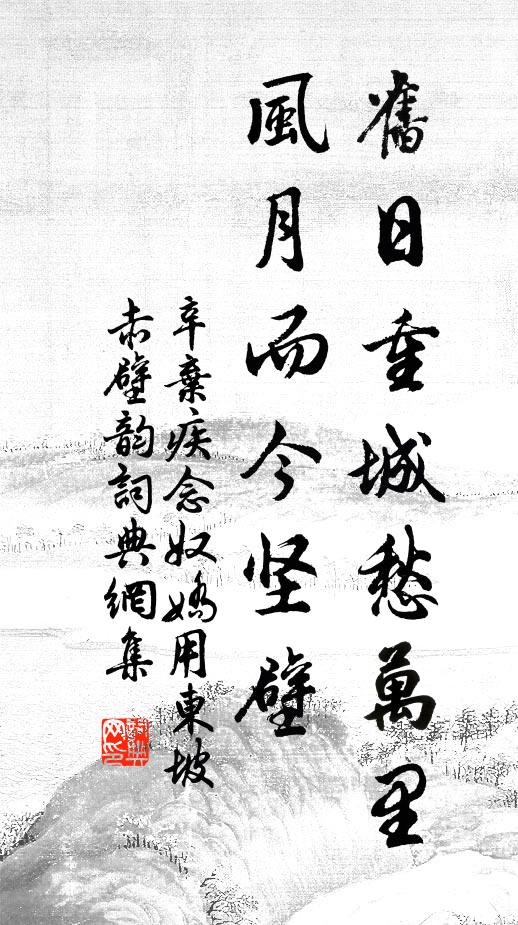 舊日重城愁萬里
風月而今坚壁
辛棄疾念奴嬌用東坡
赤壁韵詞典網集